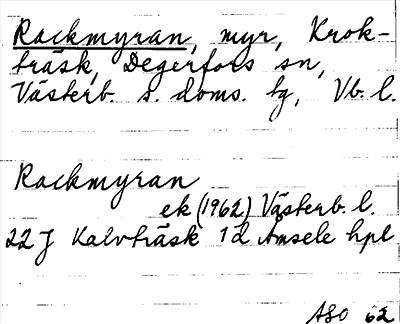 Rackmyran, myr, Krok-
träsk, Degerfors sn,
Västerb. s. doms. tg, Vb. l.
Rackmyran
ek (1962) Västerb. l.
22 J Kalvträsk 1d Åmsele hpl
ASO 62